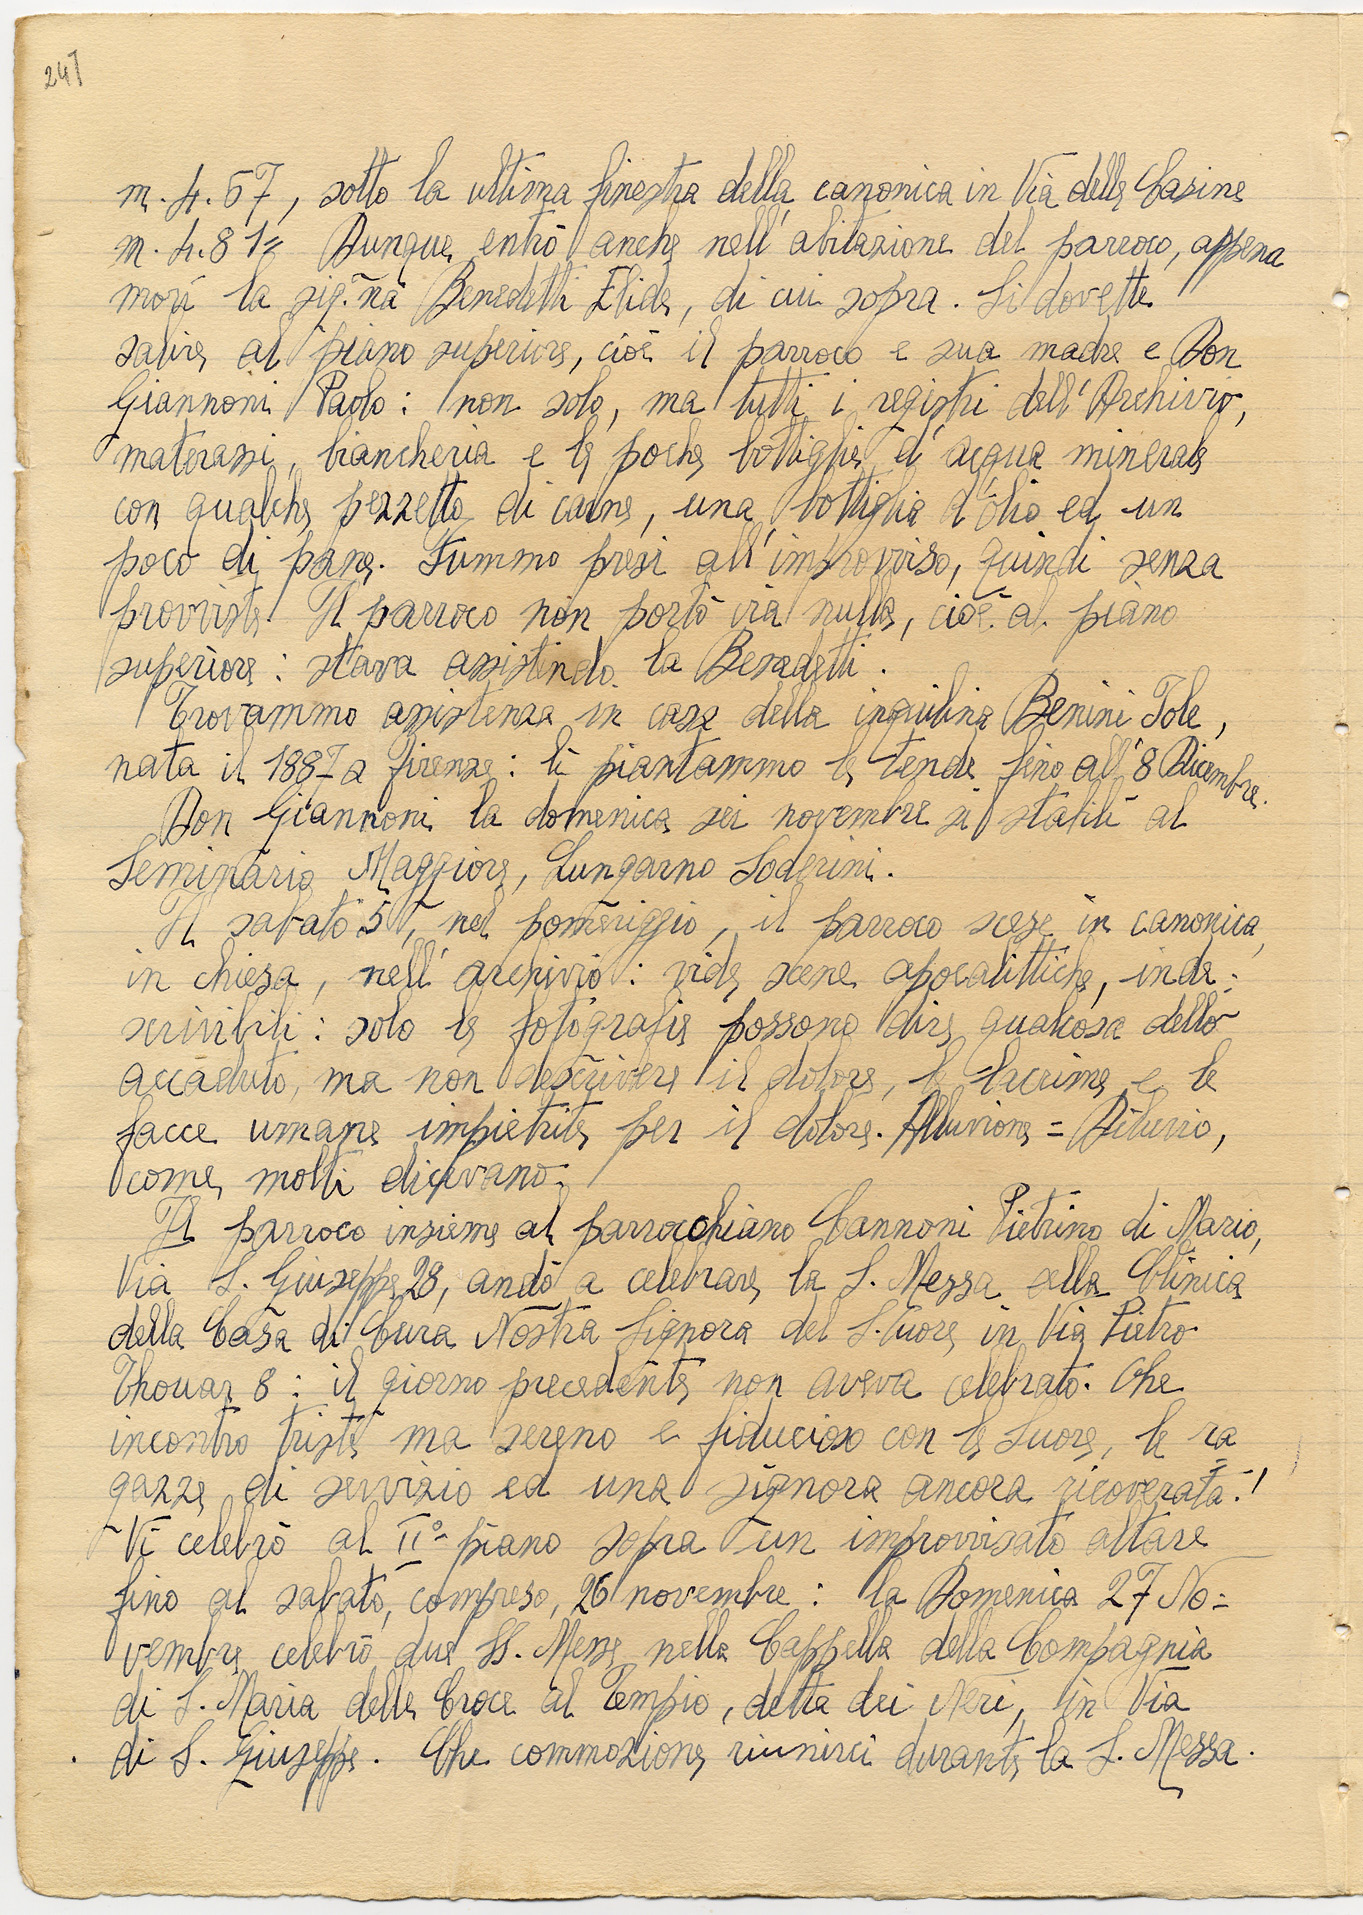 247
m. 4.57, sotto la ultima finestra della canonica in Via delle Casine
m. 4.81= Dunque entrò anche nell'abitazione del parroco, appena
morì la sig.na Benedetti Elide, di cui sopra. Si dovette
salire al piano superiore, cioè il parroco e sua madre e Don
Giannoni Paolo: non solo, ma tutti i registri dell'Archivio,
materassi, biancheria e le poche bottiglie d'acqua minerale
con qualche pezzetto di carne, una bottiglia d'olio ed un
poco di pane. Fummo presi all'improvviso, quindi senza
provviste. Il parroco non portò via nulla, cioè al piano
superiore: stava assistendo la Benedetti.
Trovammo assistenza in casa della inquilina Benini Iole,
nata il 1887 a Firenze: lì piantammo le tende fino all'8 Dicembre.
Don Giannoni la domenica sei novembre si stabilì al
Seminario Maggiore, Lungarno Soderini.
Il sabato 5, nel pomeriggio, il parroco scese in canonica,
in chiesa, nell'archivio: vide scene apocalittiche, inde=
scrivibili: solo le fotografie possono dire qualcosa dello
accaduto, ma non descrivere il dolore, le lacrime e le
facce umane impietrite per il dolore. Alluvione = Diluvio,
come molti dicevano.
Il parroco insieme al parrocchiano Cannoni Pietrino di Mario,
Via S. Giuseppe 28, andò a celebrare la S. Messa alla Clinica
della Casa di Cura Nostra Signora del S. Cuore in Via Pietro
Thouar 8: il giorno precedente non aveva celebrato. Che
incontro triste ma sereno e fiducioso con le Suore, le ra
gazze di servizio ed una signora ancora ricoverata!
Vi celebrò al II° piano sopra un improvvisato altare
fino al sabato, compreso, 26 novembre: la Domenica 27 No=
vembre celebrò due SS. Messe nella Cappella della Compagnia
di S. Maria della Croce al Tempio, detta dei Neri, in Via
di S. Giuseppe. Che commozione riunirci durante la S. Messa.